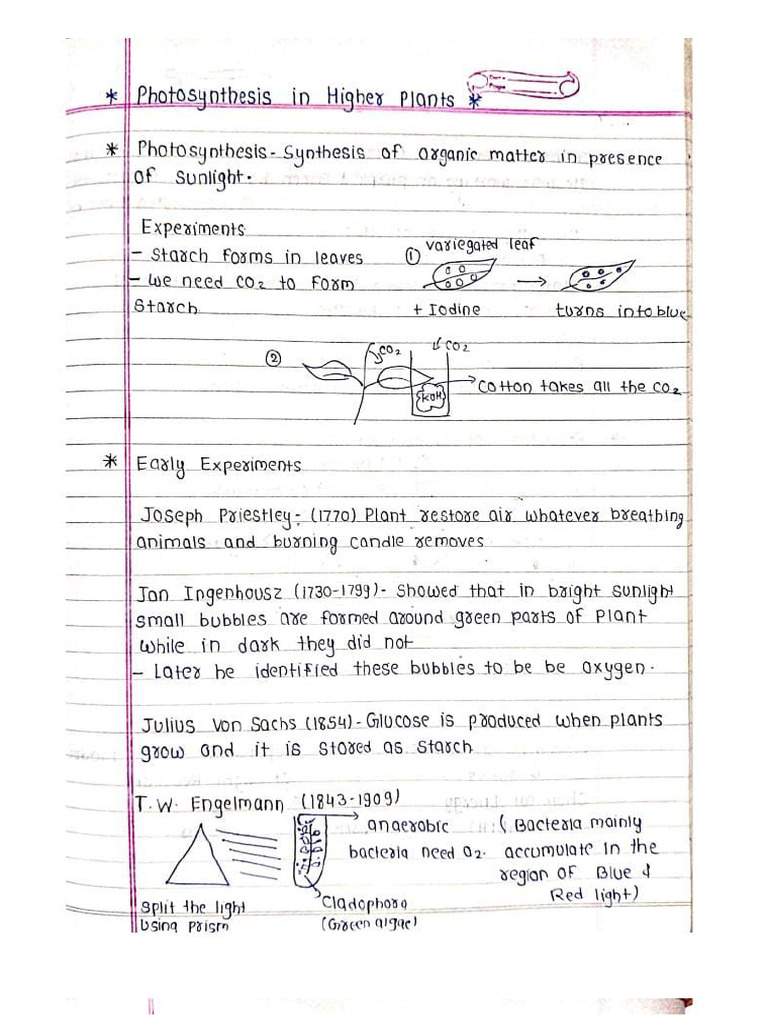 * Photosynthesis in Higher Plants *
* Photosynthesis - Synthesis of organic matter in presence
of sunlight.
Experiments
- Starch forms in leaves
- we need CO2 to form
Starch
① variegated leaf
+ Iodine turns into blue
② CO2 CO2
KOH
Cotton takes all the CO2
* Early Experiments
Joseph Priestley:- (1770) Plant restore air whatever breathing
animals and burning candle removes
Jan Ingenhousz (1730-1799)- Showed that in bright sunlight
small bubbles are formed around green parts of plant
while in dark they did not
- Later he identified these bubbles to be be oxygen.
Julius Von Sachs (1854) - Glucose is produced when plants
grow and it is stored as starch
T.W. Engelmann (1843-1909)
anaerobic
bacteria need O2.
( Bacteria mainly
accumulate in the
region of Blue &
Red light)
Split the light
using prism
Cladophora
(Green algae)